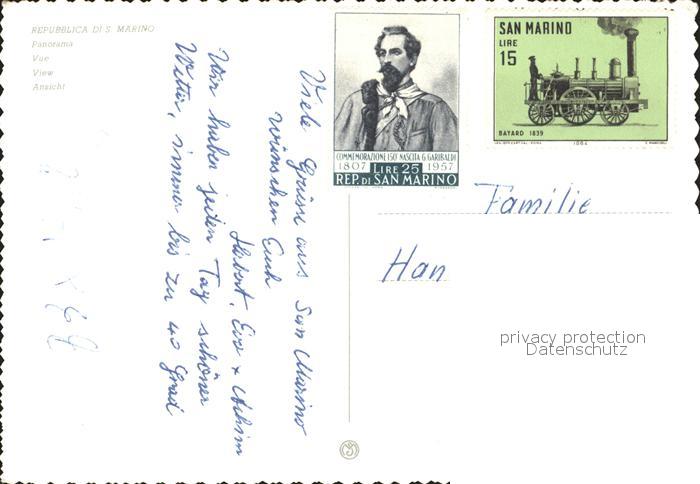 REPUBBLICA DI S. MARINO
Panorama
Vue
View
Ansicht
COMMEMORAZIONE 150° NASCITA G. GARIBALDI
1807 LIRE 25 1957
REP. DI SAN MARINO
SAN MARINO
LIRE
15
BAYARD 1839
1964
Viele Grüsse aus San Marino
wünschen Euch
Herbert, Eva + Achim
Wir haben jeden Tag schönes
Wetter, immer bis zu 40 Grad
Familie
Han
privacy protection
Datenschutz